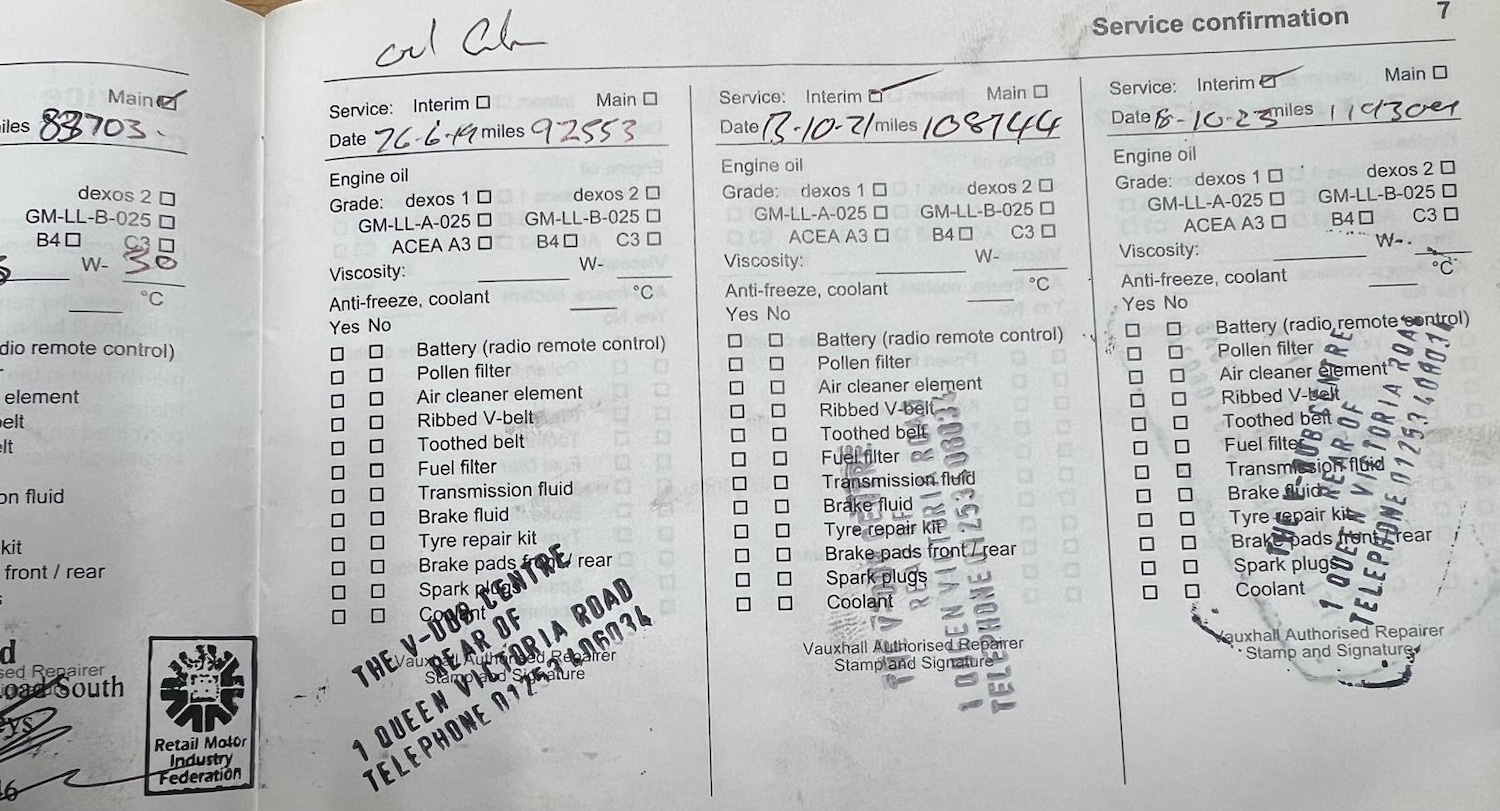 Main
iles 83703.
dexos 2
GM-LL-B-025
B4 C3
W- 30
°C
dio remote control)
element
elt
lt
on fluid
kit
front / rear
s
d
sed Repairer
oad South
Retail Motor
Industry
Federation
Service confirmation 7
Service: Interim Main
Date 26-6-19 miles 92553
Engine oil
Grade: dexos 1 dexos 2
GM-LL-A-025 GM-LL-B-025
ACEA A3 B4 C3
Viscosity: W-
Anti-freeze, coolant °C
Yes No
Battery (radio remote control)
Pollen filter
Air cleaner element
Ribbed V-belt
Toothed belt
Fuel filter
Transmission fluid
Brake fluid
Tyre repair kit
Brake pads front / rear
Spark plugs
Coolant
Vauxhall Authorised Repairer
Stamp and Signature
THE V-DUB CENTRE
REAR OF
1 QUEEN VICTORIA ROAD
TELEPHONE 01253 406034
Service: Interim Main
Date 13-10-21 miles 108744
Engine oil
Grade: dexos 1 dexos 2
GM-LL-A-025 GM-LL-B-025
ACEA A3 B4 C3
Viscosity: W-
Anti-freeze, coolant °C
Yes No
Battery (radio remote control)
Pollen filter
Air cleaner element
Ribbed V-belt
Toothed belt
Fuel filter
Transmission fluid
Brake fluid
Tyre repair kit
Brake pads front / rear
Spark plugs
Coolant
Vauxhall Authorised Repairer
Stamp and Signature
THE V-DUB CENTRE
REAR OF
1 QUEEN VICTORIA ROAD
TELEPHONE 01253 406034
Service: Interim Main
Date 18-10-23 miles
Engine oil
Grade: dexos 1 dexos 2
GM-LL-A-025 GM-LL-B-025
ACEA A3 B4 C3
Viscosity: W-
Anti-freeze, coolant °C
Yes No
Battery (radio remote control)
Pollen filter
Air cleaner element
Ribbed V-belt
Toothed belt
Fuel filter
Transmission fluid
Brake fluid
Tyre repair kit
Brake pads front / rear
Spark plugs
Coolant
Vauxhall Authorised Repairer
Stamp and Signature
THE V-DUB CENTRE
REAR OF
1 QUEEN VICTORIA ROAD
TELEPHONE 01253